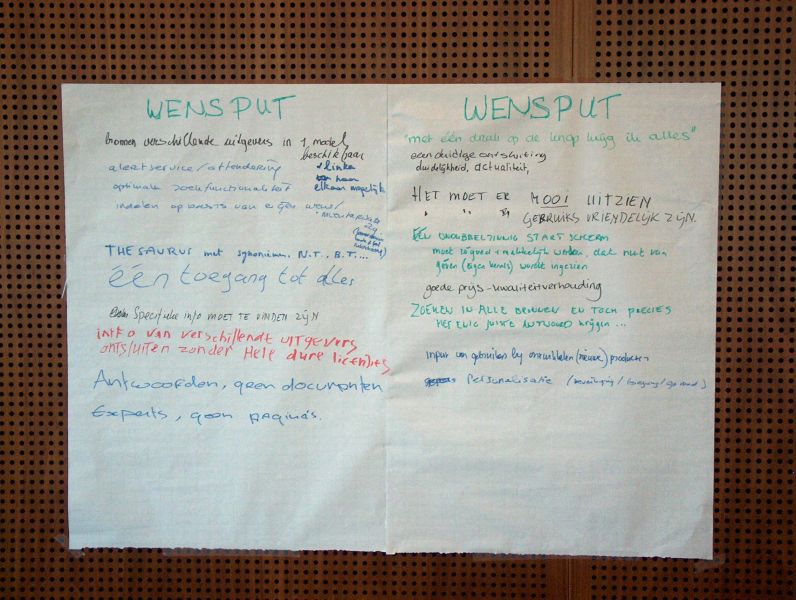 WENSPUT
bronnen verschillende uitgevers in 1 model
beschikbaar
alertservice/attendering
+ links
naar
elkaar mogelijk
optimale zoekfunctionaliteit
indelen op basis van eigen wens/
THESAURUS met synoniemen. N.T., B.T....
één toegang tot alles
Specifieke info MOET TE VINDEN ZIJN
info van verschillende UITGEVERS
ontsluiten zonder Hele dure licenties
Antwoorden, geen documenten
Experts, geen pagina's.
WENSPUT
"met één druk op de knop krijg ik alles"
eenduidige ontsluiting
duidelijkheid, actualiteit,
HET MOET ER MOOI UITZIEN
" " " GEBRUIKSVRIENDELIJK ZIJN.
ÉÉN ONDUBBELZINNIG STARTSCHERM
moet zo goed + makkelijk werken, dat nut van
geven (eigen kennis) wordt ingezien
goede prijs-kwaliteitverhouding
ZOEKEN IN ALLE BRONNEN EN TOCH PRECIES
HET ENIG JUISTE ANTWOORD krijgen ...
input van gebruikers bij ontwikkelen (nieuwe) producten
Personalisatie